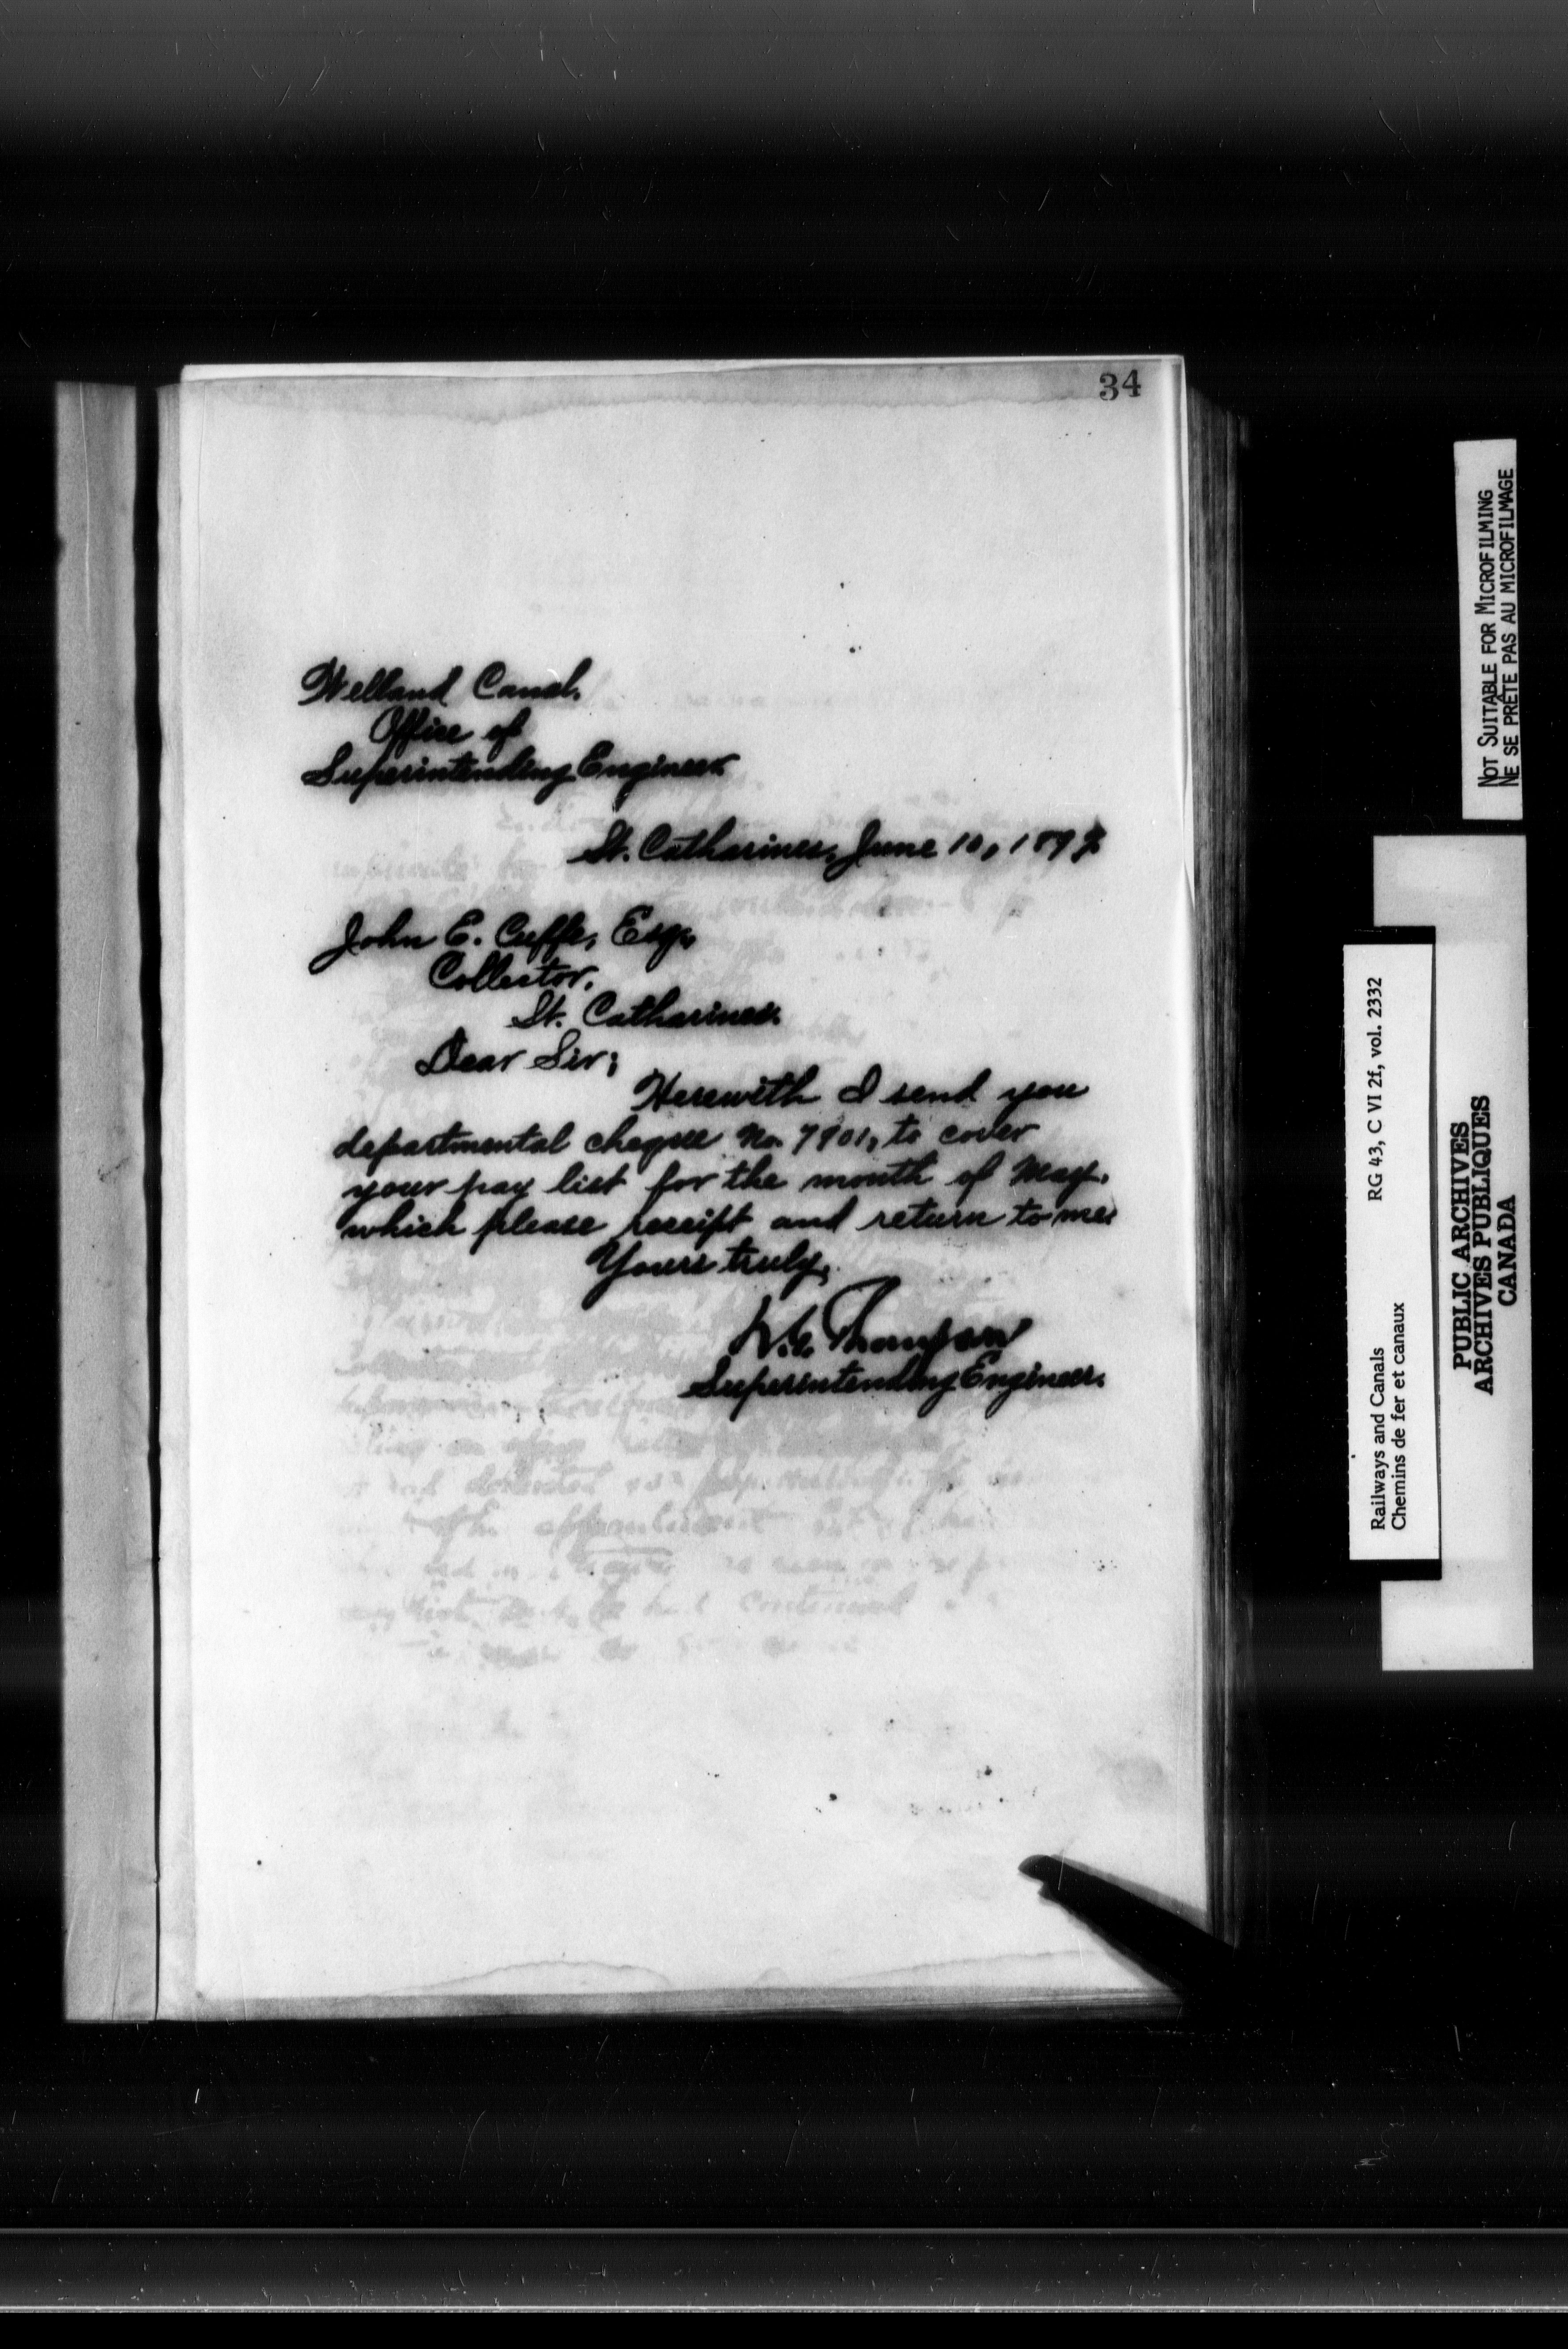 34
Welland Canal.
Office of
Superintending Engineer.
St. Catharines, June 10, 189
John E. Cuffe, Esq.
Collector,
St. Catharines.
Dear Sir;
Herewith I send you
departmental cheque No. 7901, to cover
your pay list for the month of May,
which please receipt and return to me.
Yours truly,
Thompson
Superintending Engineer.
NOT SUITABLE FOR MICROFILMING
NE SE PRÊTE PAS AU MICROFILMAGE
Railways and Canals RG 43, C VI 2f, vol. 2332
Chemins de fer et canaux
PUBLIC ARCHIVES
ARCHIVES PUBLIQUES
CANADA